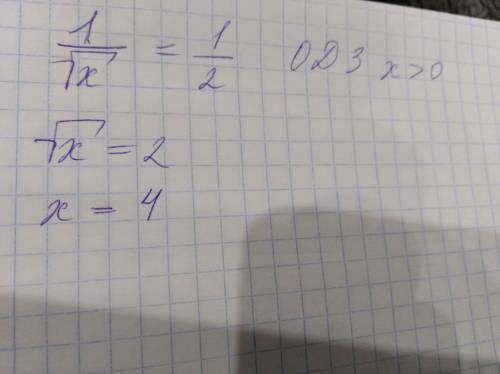 1/√x = 1/2 ОДЗ x>0
√x = 2
x = 4